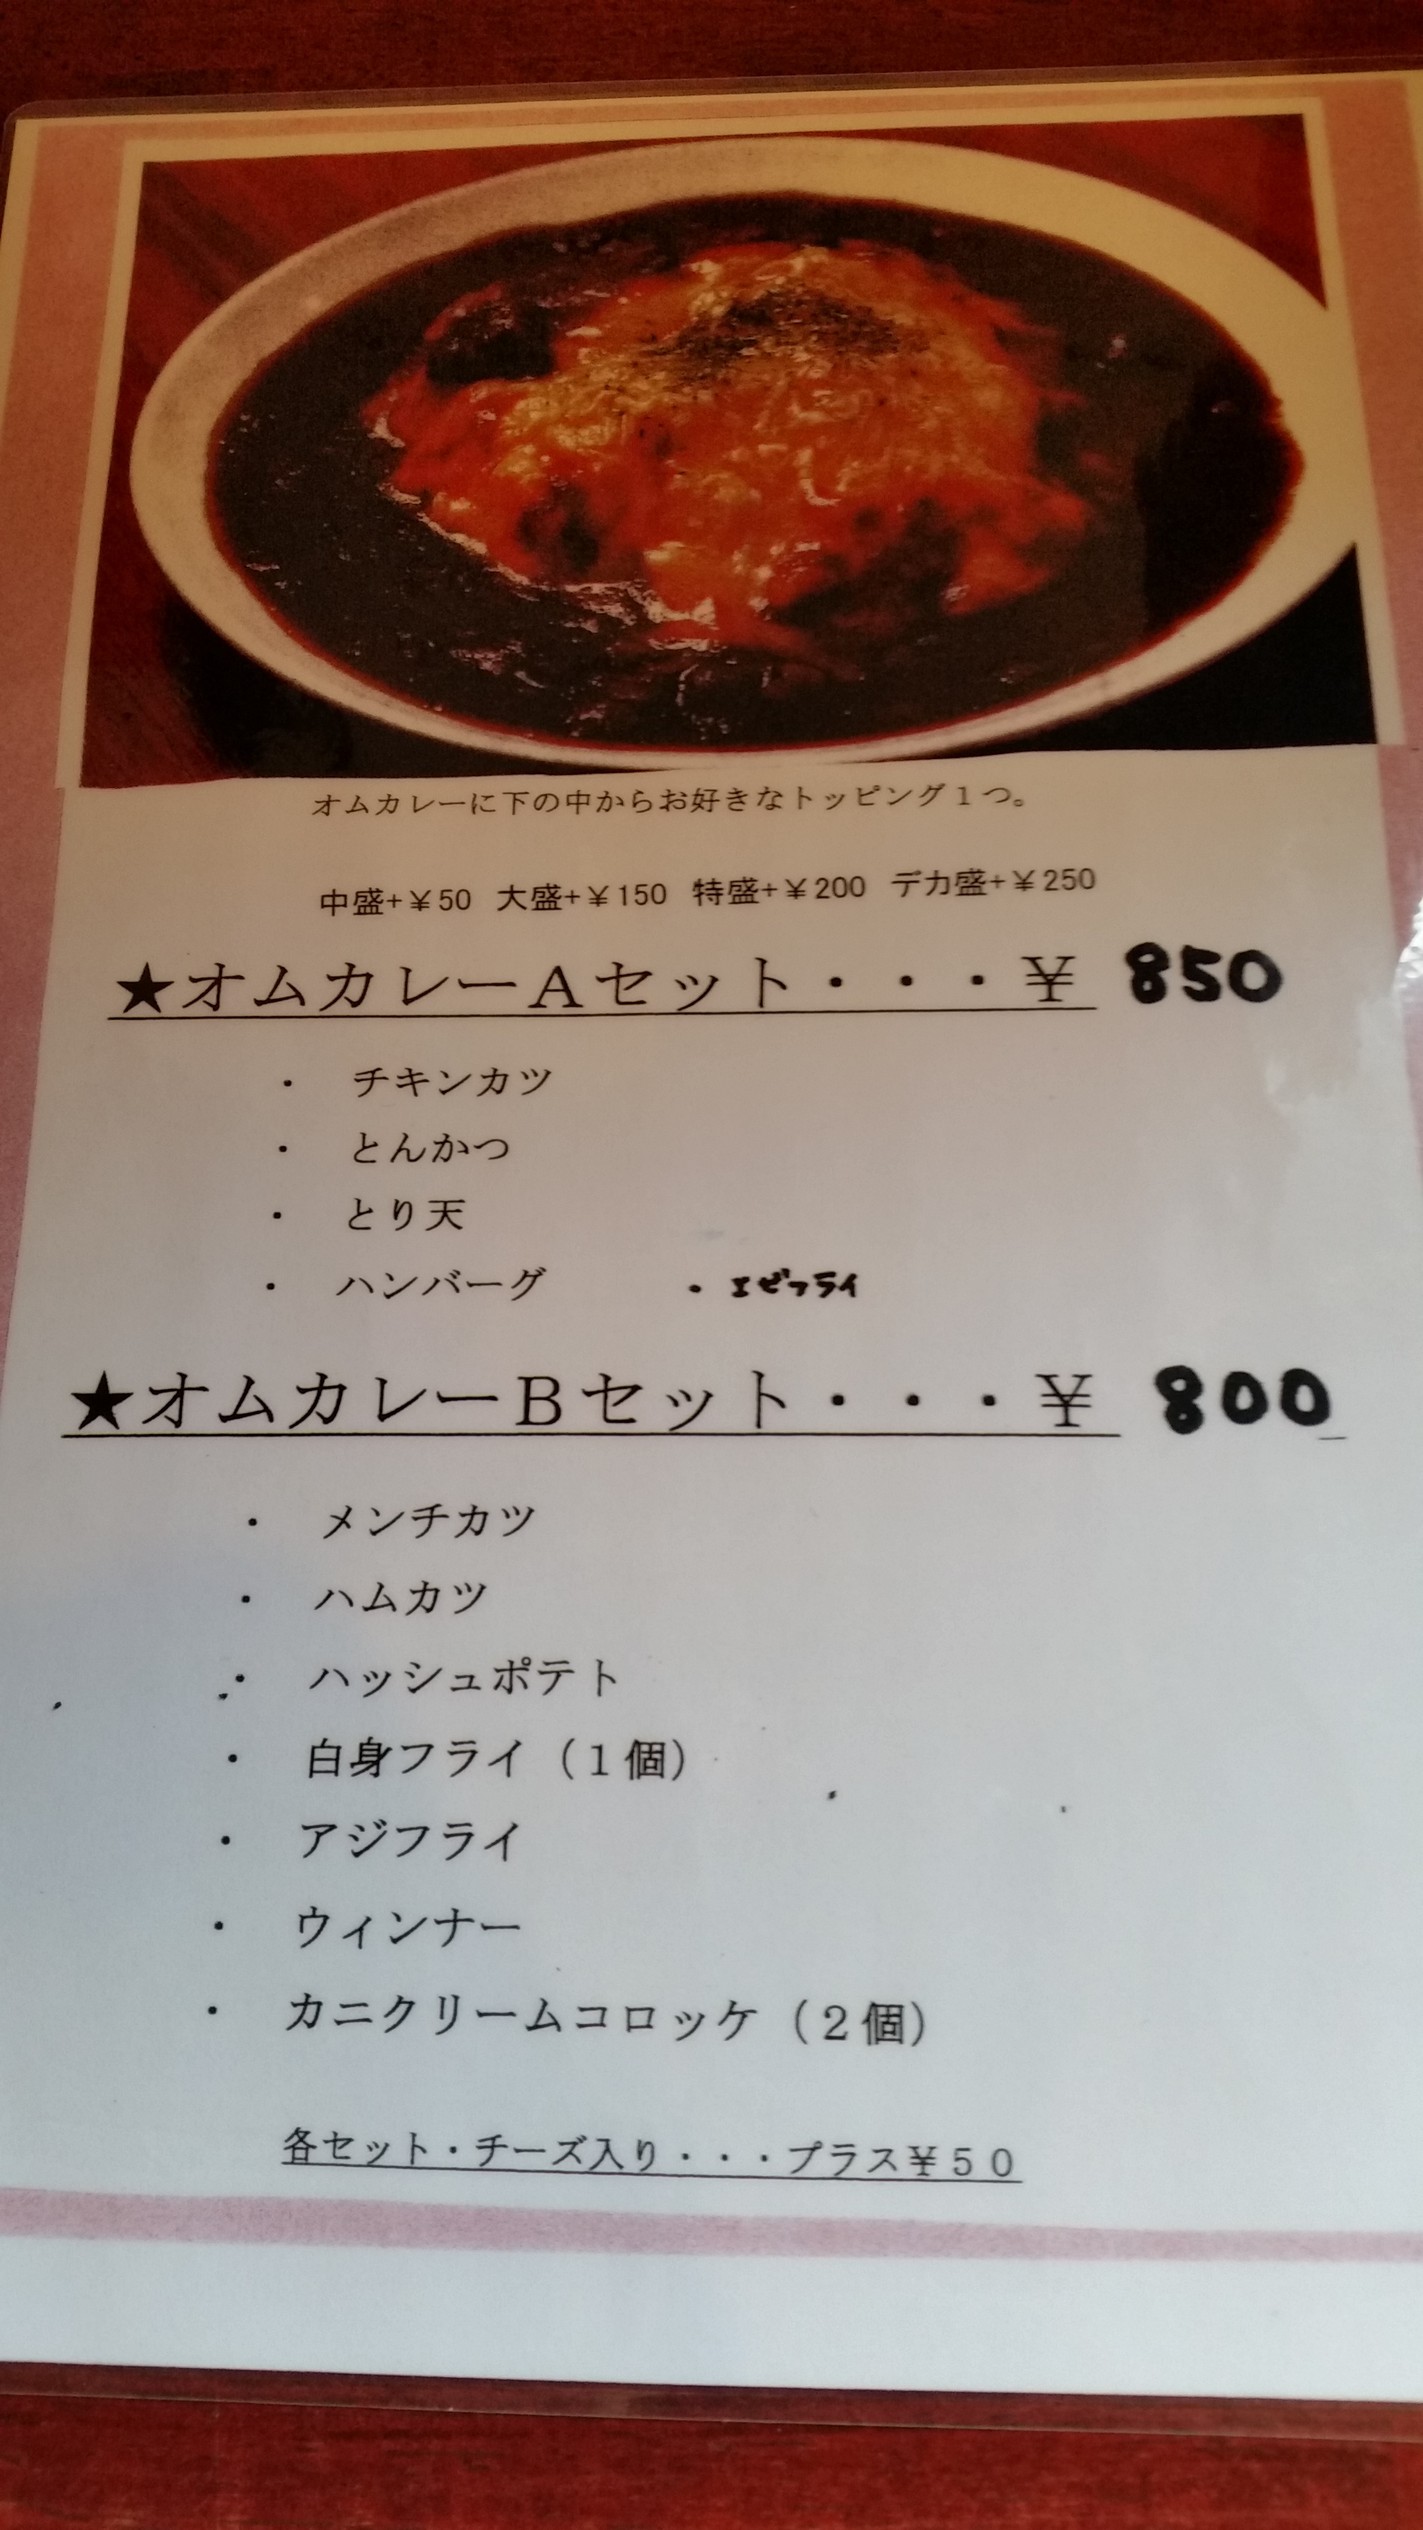 オムカレーに下の中からお好きなトッピング１つ。
中盛+￥50 大盛+￥150 特盛+￥200 デカ盛+￥250
★オムカレーＡセット・・・￥ 850
・ チキンカツ
・ とんかつ
・ とり天
・ ハンバーグ ・エビフライ
★オムカレーＢセット・・・￥ 800
・ メンチカツ
・ ハムカツ
・ ハッシュポテト
・ 白身フライ（１個）
・ アジフライ
・ ウィンナー
・ カニクリームコロッケ（２個）
各セット・チーズ入り・・・プラス￥５０